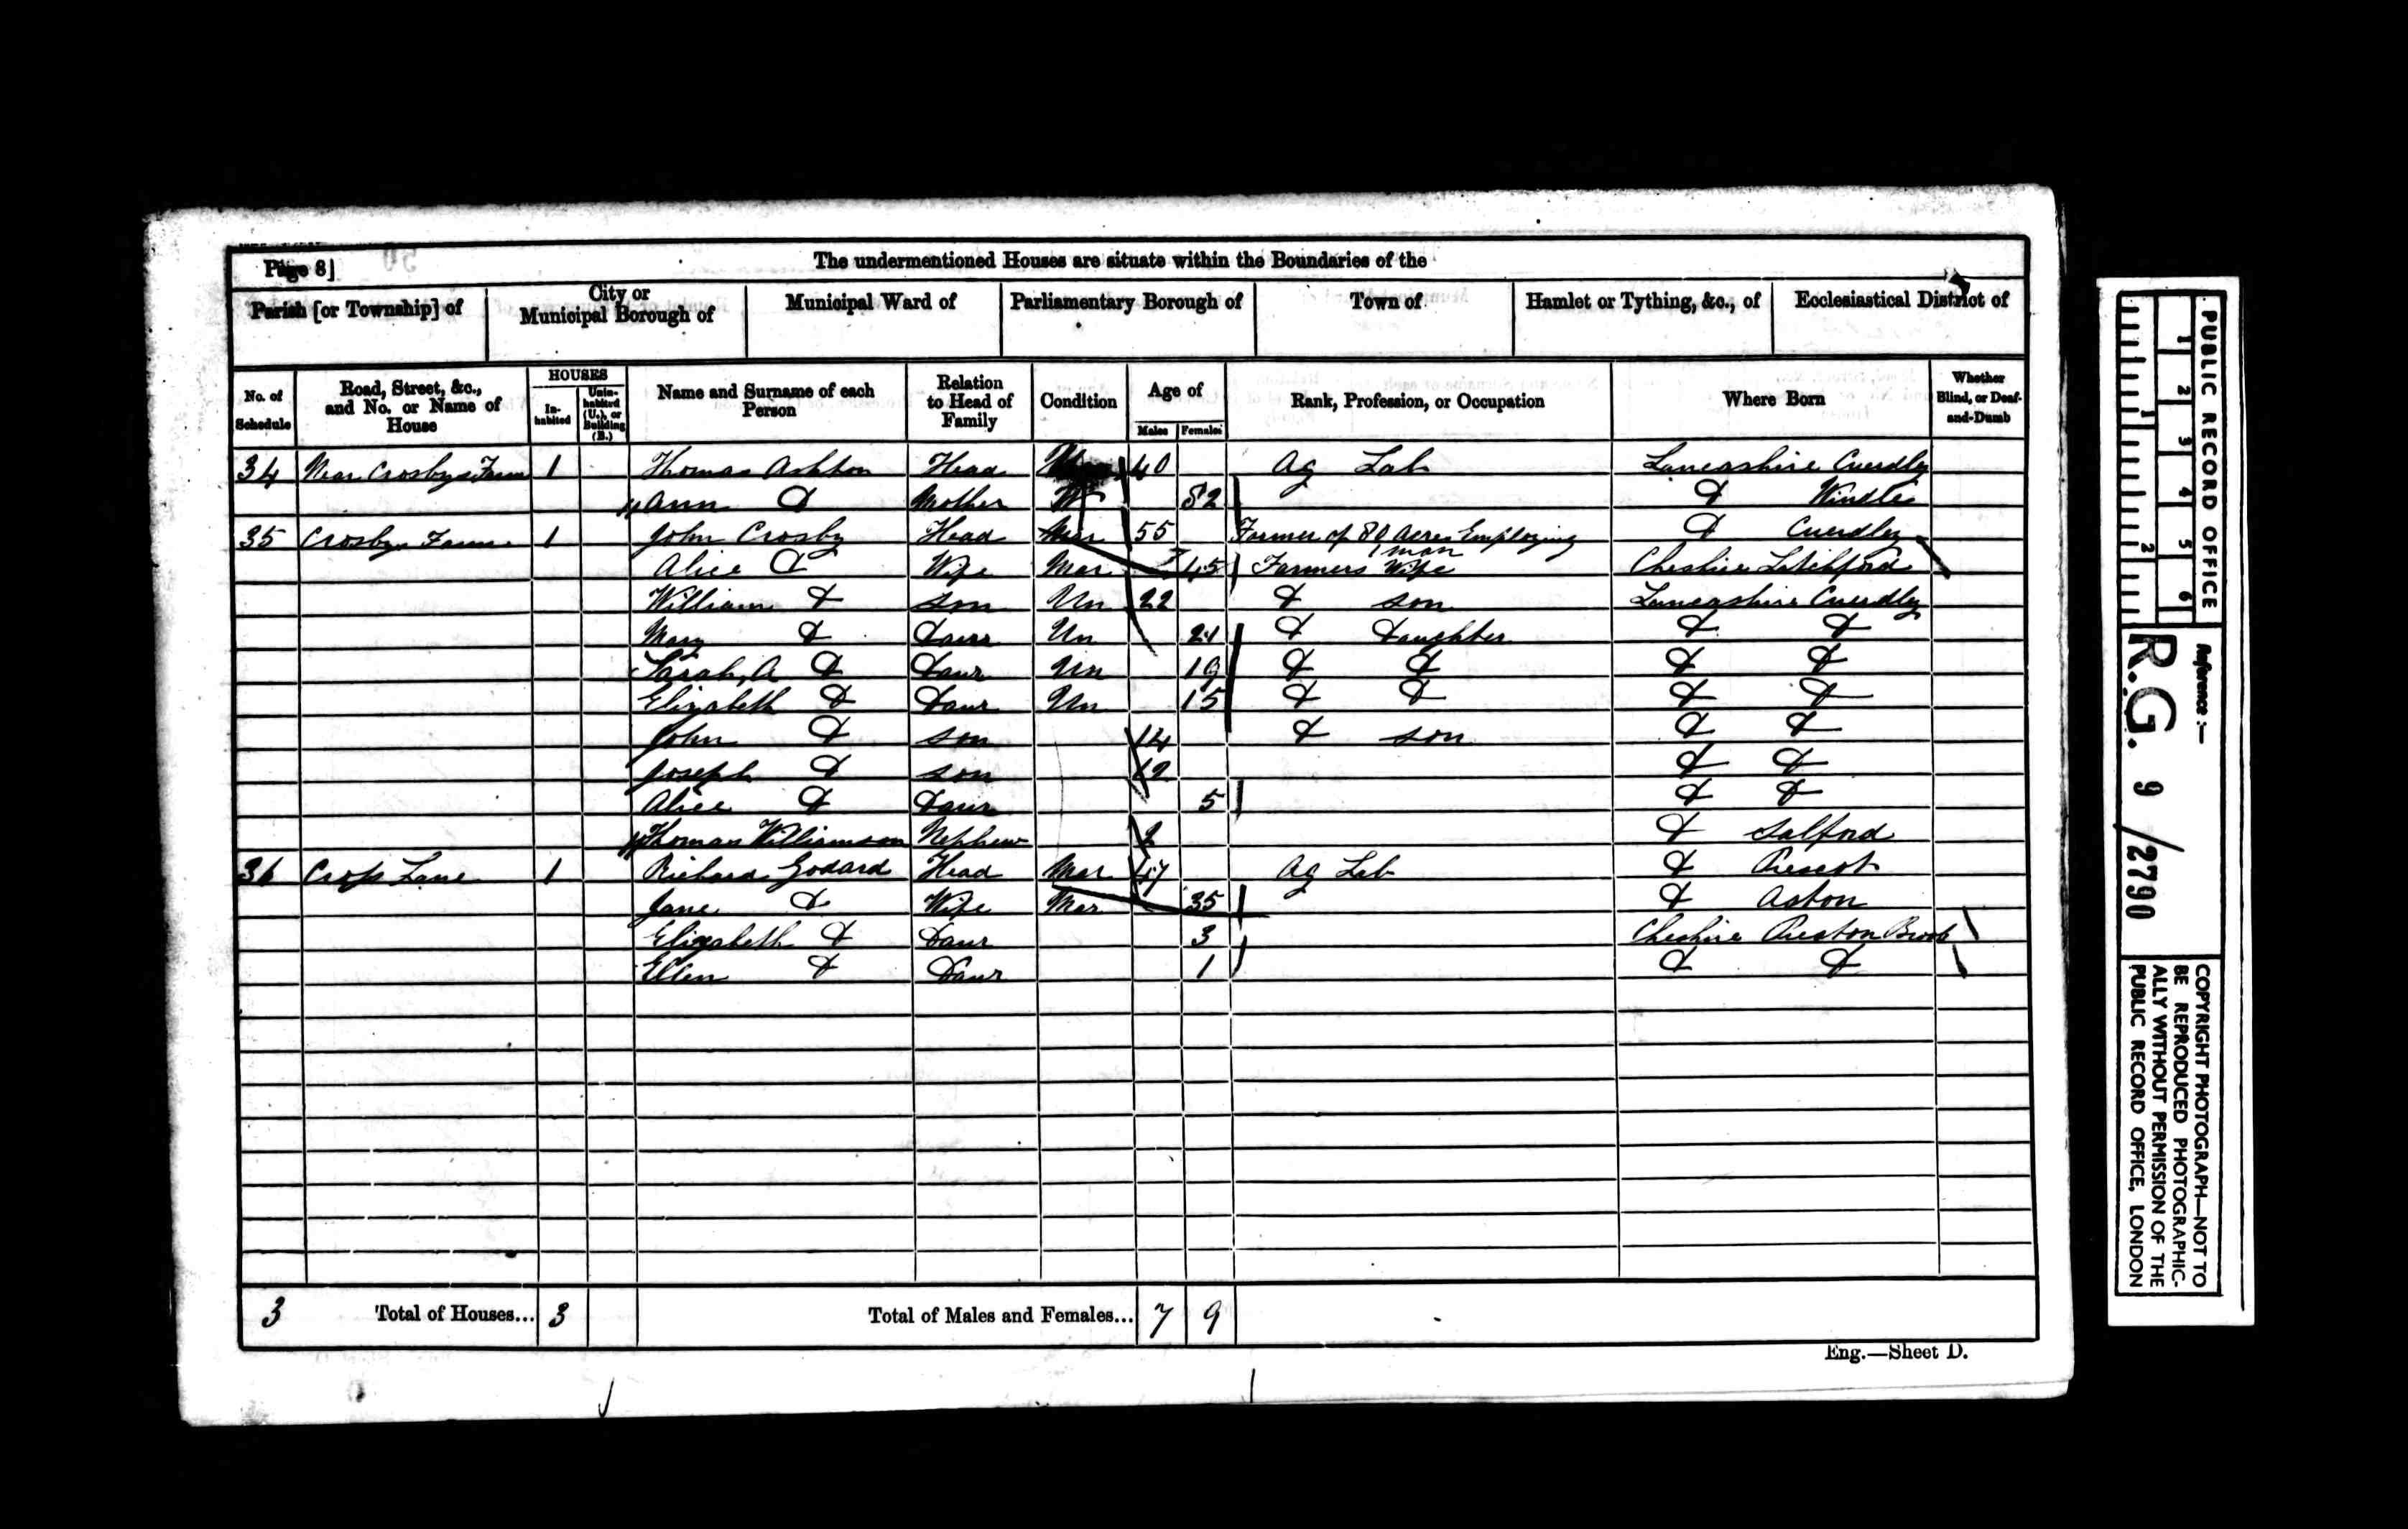 Page 8]
The undermentioned Houses are situate within the Boundaries of the
Parish [or Township] of
City or Municipal Borough of
Municipal Ward of
Parliamentary Borough of
Town of
Hamlet or Tything, &c., of
Ecclesiastical District of
No. of Schedule
Road, Street, &c., and No. or Name of House
HOUSES
In-habited
Unin-habited (U.), or Building (B.)
Name and Surname of each Person
Relation to Head of Family
Condition
Age of
Males
Females
Rank, Profession, or Occupation
Where Born
Whether Blind, or Deaf-and-Dumb
34 Near Crosbys Farm 1 Thomas Ashton Head 40 Ag Lab Lancashire Cuerdley
Ann Do Mother W 82 Do Windle
35 Crosbys Farm 1 John Crosby Head Mar 55 Farmer of 80 Acres Employing 1 man Do Cuerdley
Alice Do Wife Mar 45 Farmers Wife Cheshire Latchford
William Do Son Un 22 Do son Lancashire Cuerdley
Mary Do Daur Un 21 Do Daughter Do Do
Sarah, A Do Daur Un 19 Do Do Do Do
Elizabeth Do Daur Un 15 Do Do Do Do
John Do Son 14 Do son Do Do
Joseph Do Son 12 Do Do
Alice Do Daur 5 Do Do
Thomas Williamson Nephew 2 Do Salford
36 Cross Lane 1 Richard Godard Head Mar 47 Ag Lab Do Prescot
Jane Do Wife Mar 35 Do Aston
Elizabeth Do Daur 3 Cheshire Preston Brook
Ellen Do Daur 1 Do Do
3 Total of Houses... 3 Total of Males and Females... 7 9
Eng.—Sheet D.
PUBLIC RECORD OFFICE
1 2 3 4 5 6
1 2
Reference :—
R.G. 9 / 2790
COPYRIGHT PHOTOGRAPH—NOT TO
BE REPRODUCED PHOTOGRAPHIC-
ALLY WITHOUT PERMISSION OF THE
PUBLIC RECORD OFFICE, LONDON